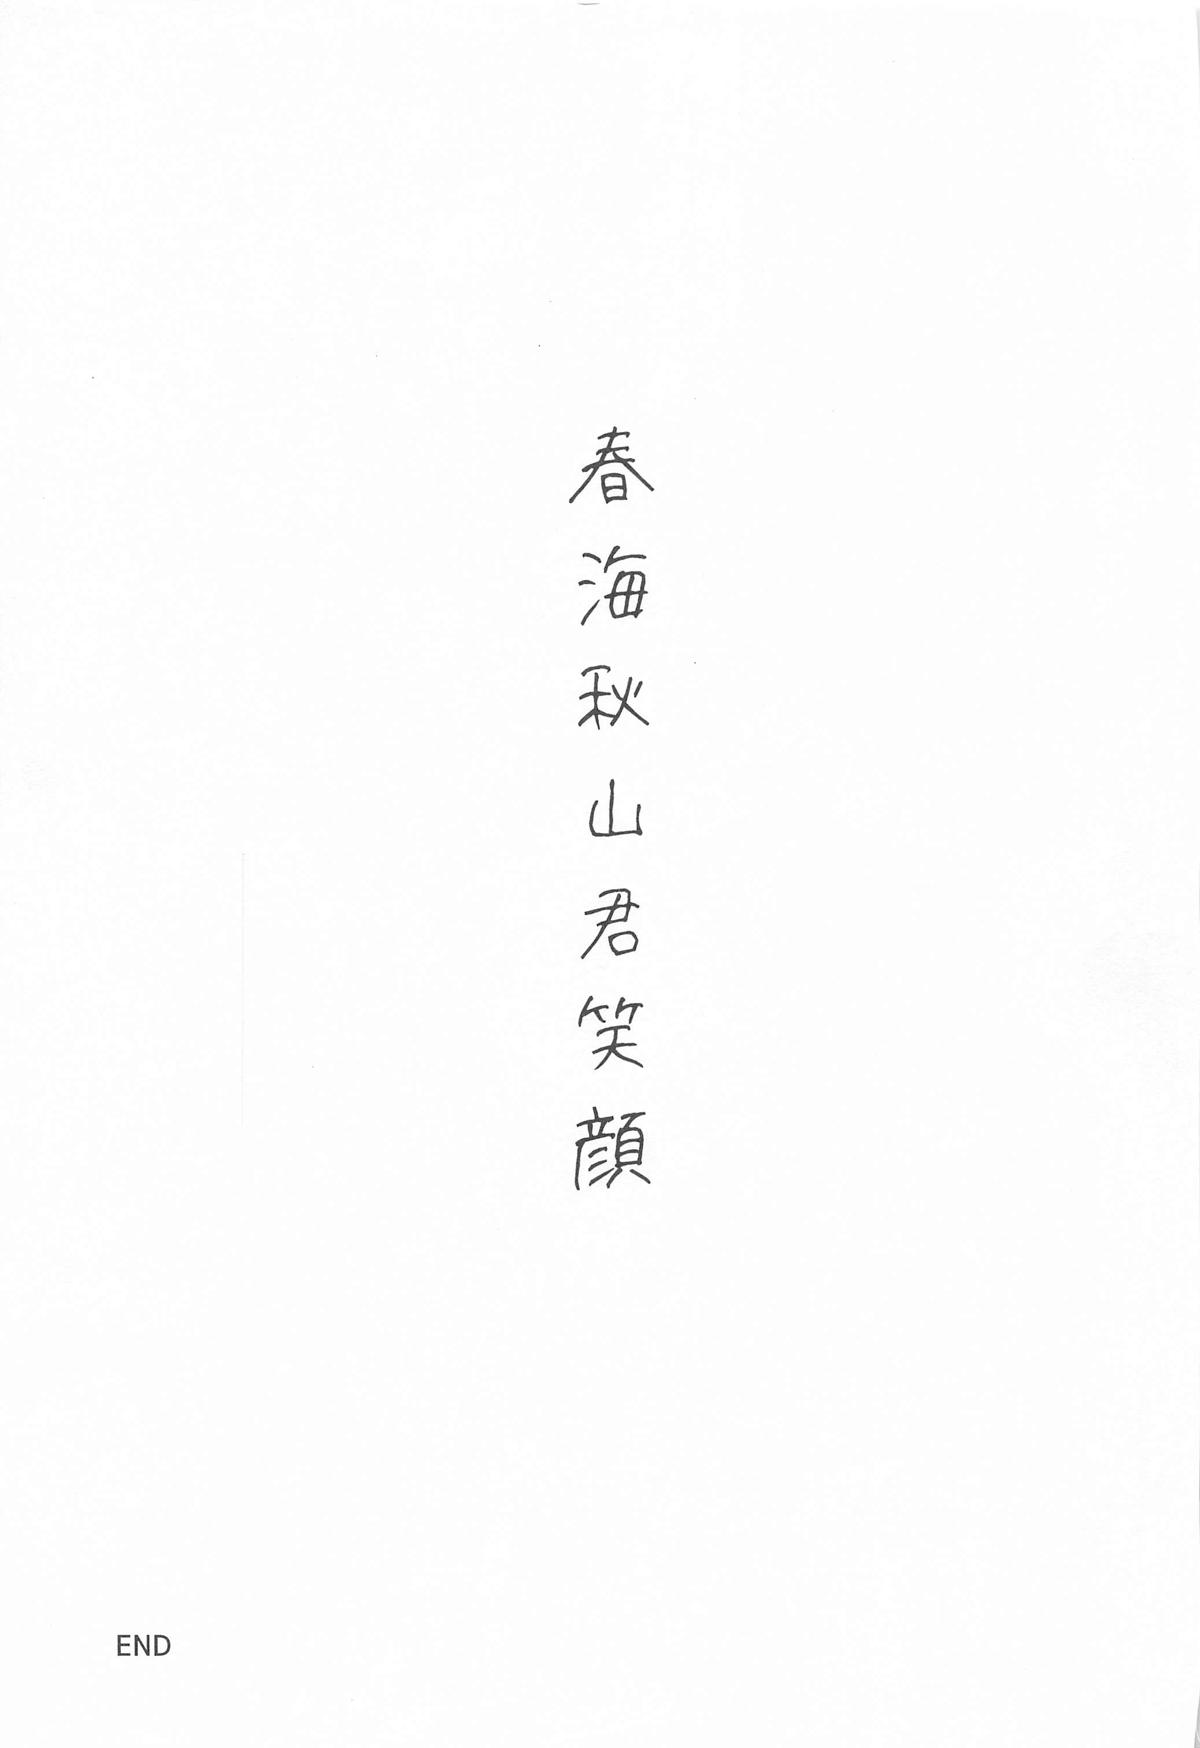 春海秋山君笑顔
END